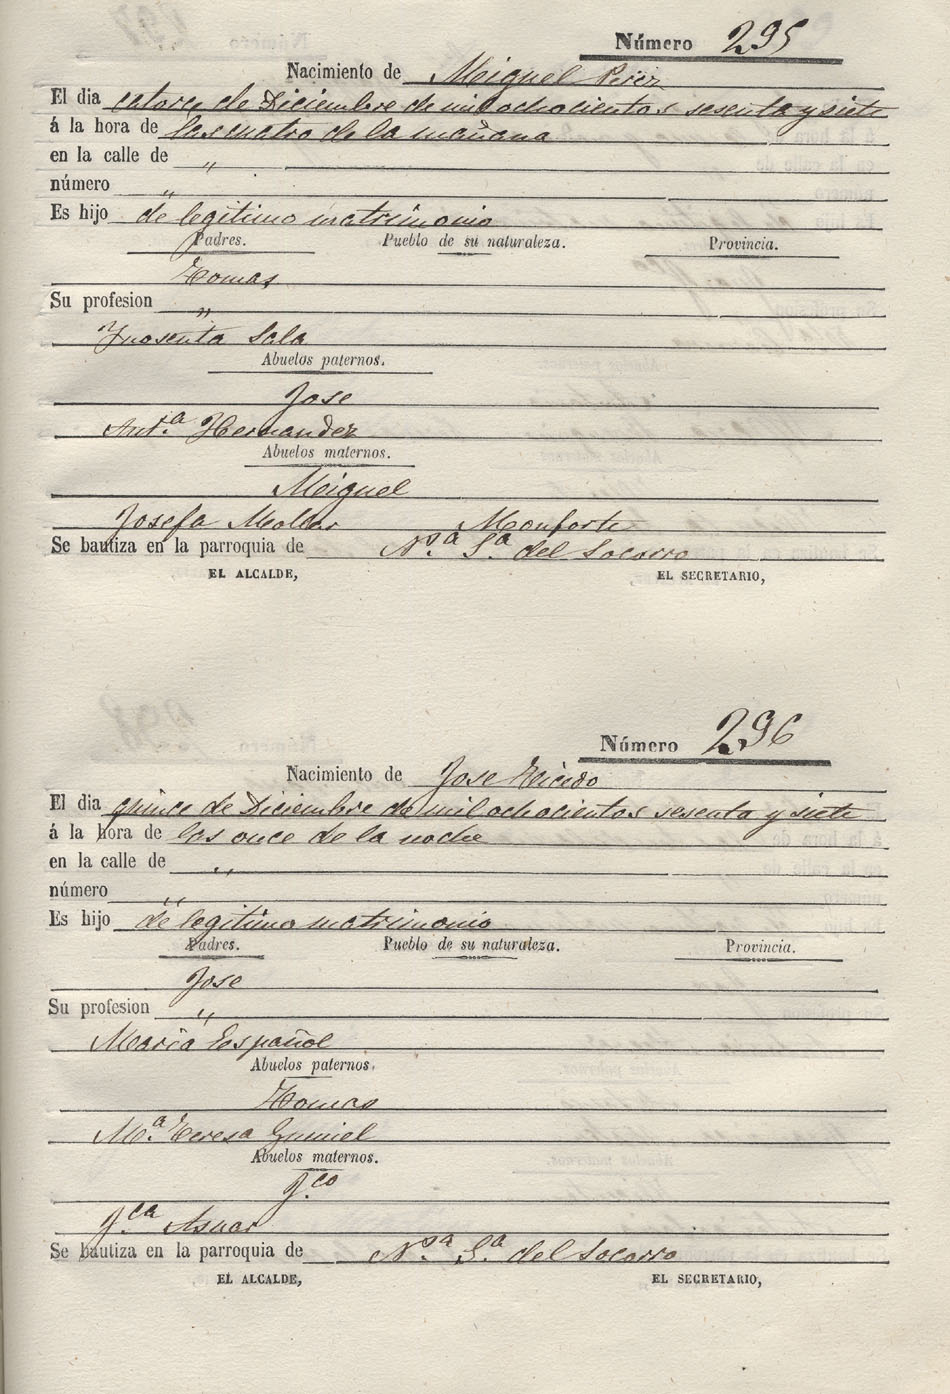 Número 295
Nacimiento de Miguel Perez
El dia catorce de Diciembre de mil ochocientos sesenta y siete
á la hora de las cuatro de la mañana
en la calle de "
número "
Es hijo de legitimo matrimonio
Padres. Pueblo de su naturaleza. Provincia.
Tomas
Su profesion "
Ynosenta Sala
Abuelos paternos.
Jose
Ant.ª Hernandez
Abuelos maternos.
Miguel
Josefa Mollar Monforte
Se bautiza en la parroquia de N.sª S.ª del Socorro
EL ALCALDE, EL SECRETARIO,
Número 296
Nacimiento de Jose
El dia quince de Diciembre de mil ochocientos sesenta y siete
á la hora de las once de la noche
en la calle de "
número "
Es hijo de legitimo matrimonio
Padres. Pueblo de su naturaleza. Provincia.
Jose
Su profesion "
Maria Español
Abuelos paternos.
Tomas
M.ª Teresa Gumiel
Abuelos maternos.
F.co
F.ca Asnar
Se bautiza en la parroquia de N.sª S.ª del Socorro
EL ALCALDE, EL SECRETARIO,